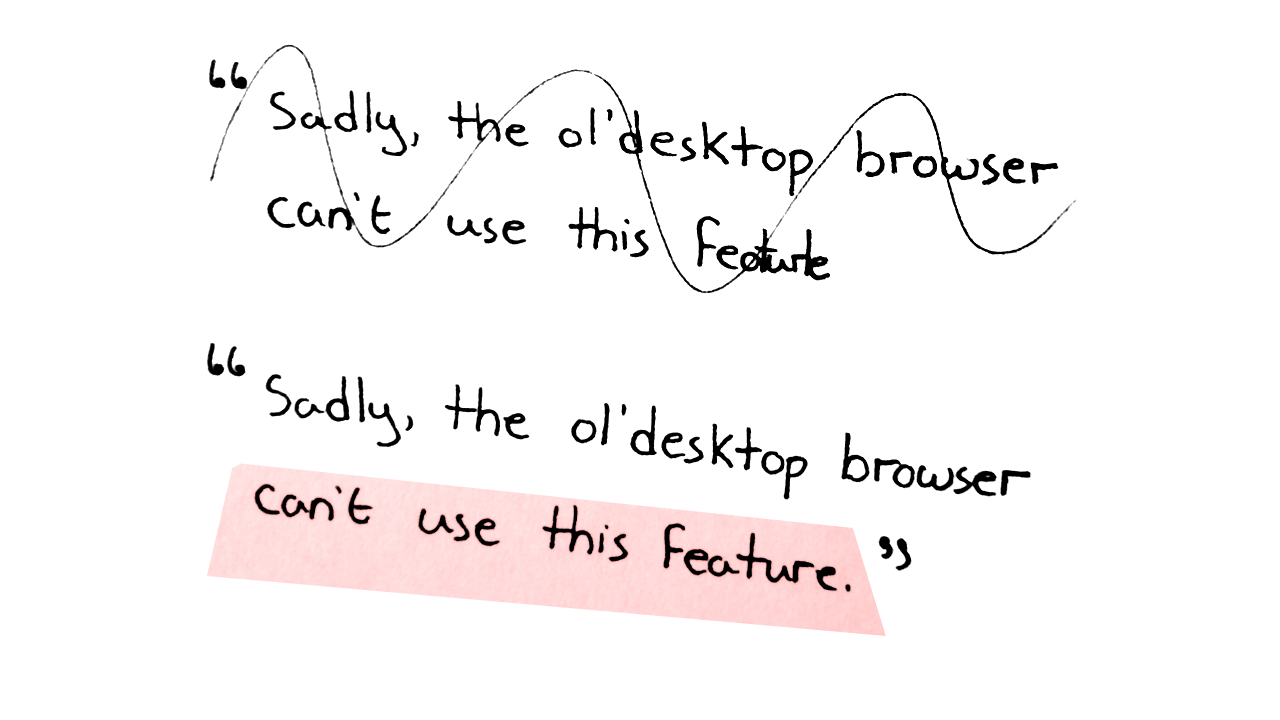 “Sadly, the ol'desktop browser
can't use this feature
“Sadly, the ol'desktop browser
can't use this feature.”